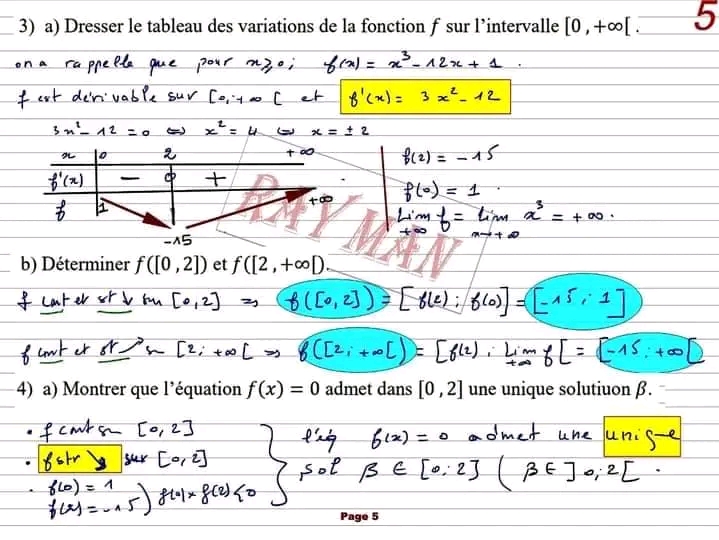 5
3) a) Dresser le tableau des variations de la fonction f sur l'intervalle [0 , +∞[ .
on a rappelle que pour x ≥ 0 ; f(x) = x³ - 12x + 1 .
f est dérivable sur [0, +∞ [ et f'(x) = 3x² - 12
3x² - 12 = 0 ⇔ x² = 4 ⇔ x = ± 2
x 0 2 +∞
f'(x) - 0 +
f 1 -15 +∞
f(2) = -15
f(0) = 1
Lim f = lim x³ = +∞ .
+∞ x→+∞
RAYMAN
b) Déterminer f([0 ,2]) et f([2 ,+∞[).
f cont et st ↘ sur [0,2] ⇒ f([0,2]) = [f(2) ; f(0)] = [-15 ; 1]
f cont et st ↗ sur [2; +∞[ ⇒ f([2; +∞[) = [f(2) ; Lim f [ = [-15 ; +∞[
+∞
4) a) Montrer que l'équation f(x) = 0 admet dans [0 ,2] une unique solutiuon β.
• f cont sur [0,2]
• f str ↘ sur [0,2]
• f(0) = 1
f(2) = -15 ) f(0) × f(2) < 0
l'éq f(x) = 0 admet une unique
sol β ∈ [0; 2] ( β ∈ ] 0; 2[ .
Page 5